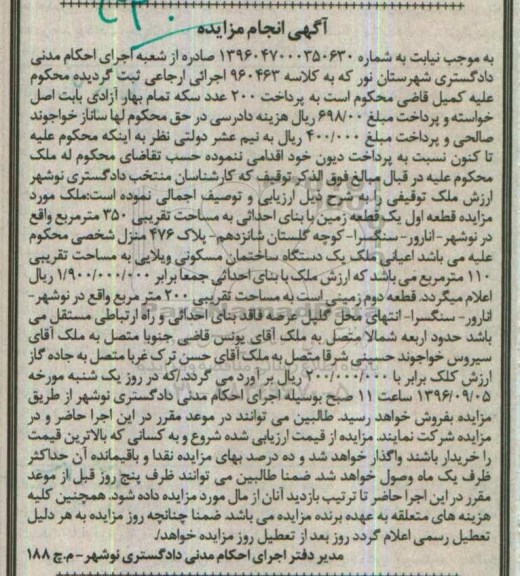 آگهی انجام مزایده
به موجب نیابت به شماره ۱۳۹۶۰۴۷۰۰۰۳۵۰۶۳۰ صادره از شعبه اجرای احکام مدنی
دادگستری شهرستان نور که به کلاسه ۹۶۰۴۶۳ اجرائی ارجاعی ثبت گردیده محکوم
علیه کمیل قاضی محکوم است به پرداخت ۲۰۰ عدد سکه تمام بهار آزادی بابت اصل
خواسته و پرداخت مبلغ ۶۹۸/۰۰ ریال هزینه دادرسی در حق محکوم لها ساناز خواجوند
صالحی و پرداخت مبلغ ۴۰۰/۰۰۰ ریال به نیم عشر دولتی نظر به اینکه محکوم علیه
تا کنون نسبت به پرداخت دیون خود اقدامی ننموده حسب تقاضای محکوم له ملک
محکوم علیه در قبال مبالغ فوق الذکر توقیف که کارشناسان منتخب دادگستری نوشهر
ارزش ملک توقیفی را به شرح ذیل ارزیابی و توصیف اجمالی نموده است:ملک مورد
مزایده قطعه اول یک قطعه زمین با بنای احداثی به مساحت تقریبی ۳۵۰ مترمربع واقع
در نوشهر- انارور- سنگسرا- کوچه گلستان شانزدهم- پلاک ۴۷۶ منزل شخصی محکوم
علیه می باشد اعیانی ملک یک دستگاه ساختمان مسکونی ویلایی به مساحت تقریبی
۱۱۰ مترمربع می باشد که ارزش ملک با بنای احداثی جمعا برابر ۱/۹۰۰/۰۰۰/۰۰۰ ریال
اعلام میگردد. قطعه دوم زمینی است به مساحت تقریبی ۲۰۰ متر مربع واقع در نوشهر-
انارور- سنگسرا- انتهای محل گلیل عرصه فاقد بنای احداثی و راه ارتباطی مستقل می
باشد حدود اربعه شمالا متصل به ملک آقای یونس قاضی جنوبا متصل به ملک آقای
سیروس خواجوند حسینی شرقا متصل به ملک آقای حسن ترک غربا متصل به جاده گاز
ارزش کلک برابر با ۷۰۰/۰۰۰/۰۰۰ ریال بر آورد می گردد./که در روز یک شنبه مورخه
۱۳۹۶/۰۹/۰۵ ساعت ۱۱ صبح بوسیله اجرای احکام مدنی دادگستری نوشهر از طریق
مزایده بفروش خواهد رسید. طالبین می توانند در موعد مقرر در این اجرا حاضر و در
مزایده شرکت نمایند. مزایده از قیمت ارزیابی شده شروع و به کسانی که بالاترین قیمت
را خریدار باشند واگذار خواهد شد و ده درصد بهای مزایده نقدا و باقیمانده آن حداکثر
ظرف یک ماه وصول خواهد شد. ضمنا طالبین می توانند ظرف پنج روز قبل از موعد
مقرر در این اجرا حاضر تا ترتیب بازدید آنان از مال مورد مزایده داده شود. همچنین کلیه
هزینه های متعلقه به عهده برنده مزایده می باشد. ضمنا چنانچه روز مزایده به هر دلیل
تعطیل رسمی اعلام گردد روز بعد از تعطیل روز مزایده خواهد./
مدیر دفتر اجرای احکام مدنی دادگستری نوشهر- م.چ ۱۸۸